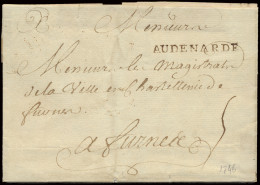 Messieurs
AUDENARDE
Messieurs les Magistrats
de la Ville et Chastellenie de
furnes
a furnes
5
1786